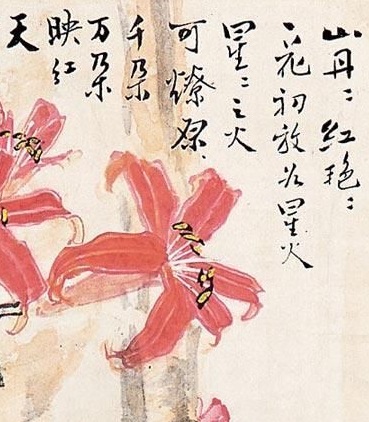 山丹〻红艳〻
一花初放名星火
星〻之火
可燎原
千朵
万朵
映红
天